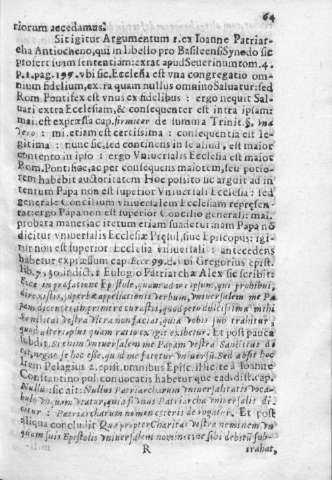 64
riorum accedamus.
Sit igitur Argumentum 1. ex Ioanne Patriar-
cha Antiocheno, qui in libello pro Basileensi Synodo sic
profert suam sententiam: extat apud Seuerinum tom. 4.
p. 1. pag. 199. vbi sic. Ecclesia est vna congregatio om-
nium fidelium, extra quam nullus omnino Saluatur: sed
Rom. Pontifex est vnus ex fidelibus: ergo nequit Sal-
uari extra Ecclesiam, & consequenter est intra ipsam:
mai. est expressa cap. firmiter de summa Trinit. §. vna
vero: mi. etiam est certissima: consequentia est le-
gitima: nunc sic, sed continens in se aliud, est maior
contento in ipso: ergo Vniuersalis Ecclesia est maior
Rom. Pontifice, ac per consequens maiorem, seu potio-
rem habebit auctoritatem Hoc posito sic arguit ad in-
tentum Papa non est superior Vniuersali Ecclesia: sed
generale Concilium vniuersalem Ecclesiam represen-
tat: ergo Papa non est superior Concilio generali: mai.
probata manens: interum etiam suadetur: nam Papa nō
dicitur vniuersalis Ecclesiæ Præsul, siue Episcopus: igi-
tur non est superior Ecclesia vniuersali: antecedens
habetur expressum cap. Ecce 99. d. vbi Gregorius epist.
lib. 7. 30. indict. 1 Eulogio Patriarchæ Alex sic scribit:
Ecce in præfatione Epistolæ, quam ad me ipsum, qui prohibui,
direxistis, superbæ appellationis verbum, vniuersalem me Pa-
pam dicentes, imprimere curastis, quod peto dulcissima mihi
Sanctitas vestra vltra non faciat, quia vobis subtrahitur,
quod alteri plus quam ratio exigit exibetur. Et post pauca
subdit. Si enim vniuersalem me Papam vestra Sanctitas di-
cit, negat se hoc esse, quod me fatetur vniuersū. Sed absit hoc
Item Pelagius 2. epist. omnibus Episc. Illicite à Ioanne
Constantinopul. conuocatis habetur que ead. dist. cap.
Nullus: sic ait: Nullus Patriarcharum vniuersalitatis vocabu-
lo vnquam vtatur, quia si vnus Patriarcha vniuersalis di-
citur: Patriarcharum nomen cæteris derogatur. Et post
aliqua concludit Quapropter Charitas vestra neminem vn-
quam suis Epistolis vniuersalem nominet, ne sibi debitū sub-
R
trahat,